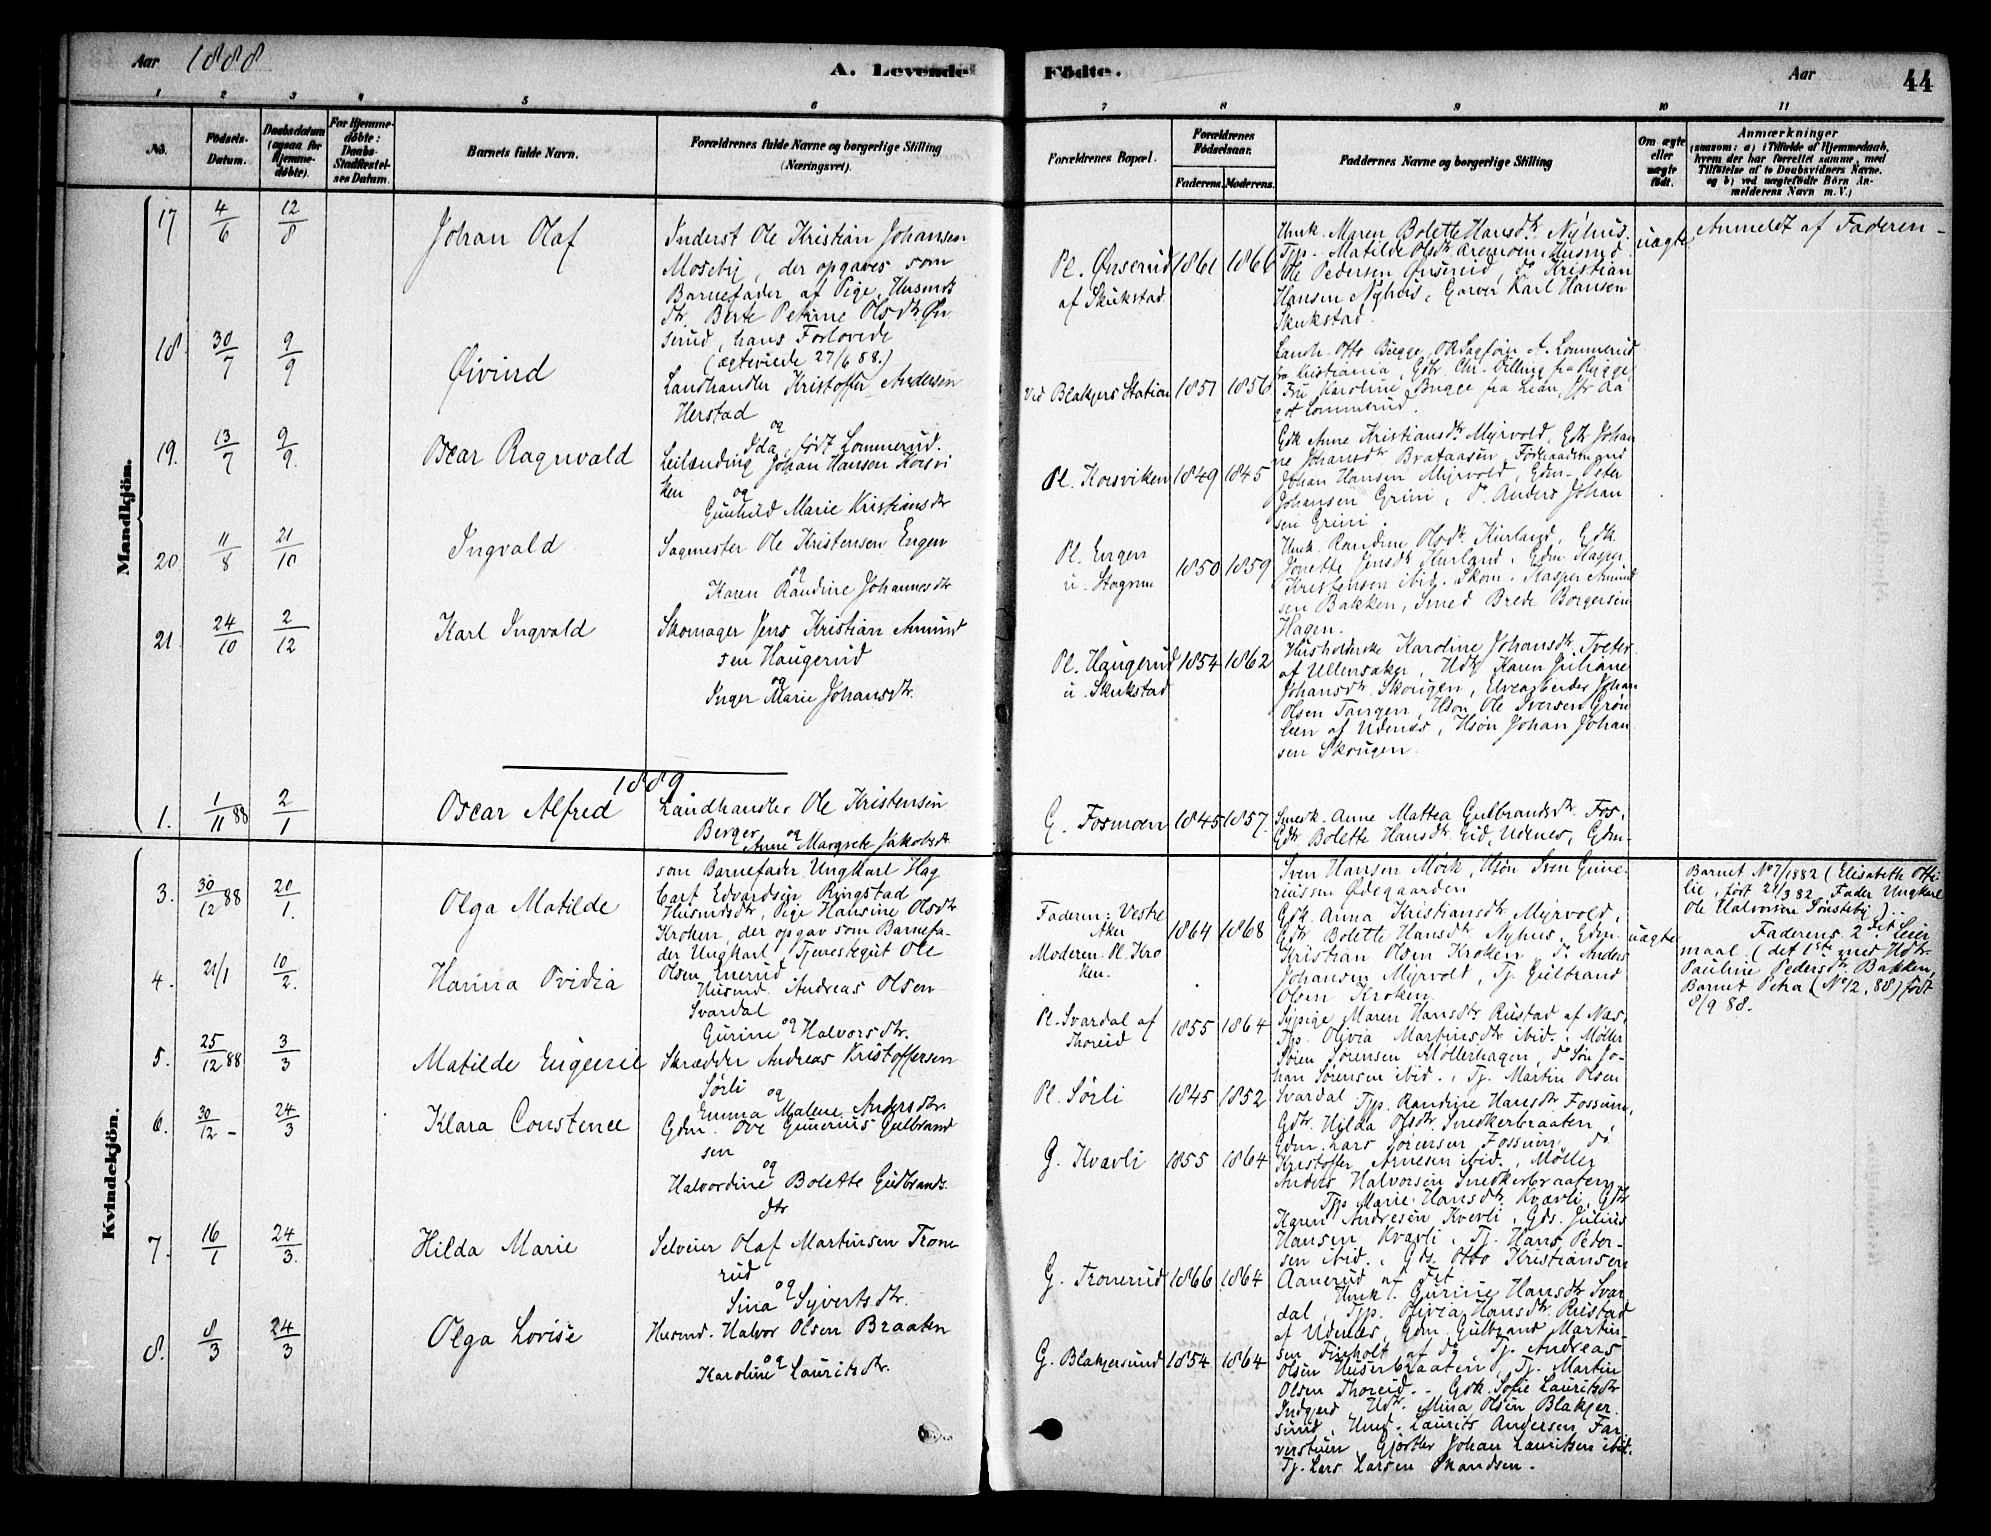 Aar 1888
A. Levende Födte.
Aar
44
1 2 3 4 5 6 7 8 9 10 11
No.
Födsels-
Datum.
Daabsdatum
(ogsaa for
Hjemme-
döbte).
For Hjemme-
döbte:
Daabs-
Stadfæstel-
ses Datum.
Barnets fulde Navn.
Forældrenes fulde Navne og borgerlige Stilling
(Næringsvei).
Forældrenes Bopæl.
Forældrenes
Födselsaar.
Faderens. Moderens.
Faddernes Navne og borgerlige Stilling
Om ægte
eller
uægte
født.
Anmærkninger
(saasom: a) i Tilfælde af Hjemmedaab,
hvem der har forrettet samme, med
Tilföielse af to Daabsvidners Navne.
og b) ved uægtefødte Börn An-
melderens Navn m. V.)
Mandkjön.
17 4/6 12/8
Johan Olaf
Inderst Ole Kristian Johansen
Moseby, der opgaves som
Barnefader af Pige, Husmds
dtr. Berte Petrine Olsdtr Øn
serud, hans Forlovede
(ægteviede 27/6 88.)
Pl. Ønserud
af Skukstad
1861 1866
Hmk. Maren Bolette Hansdtr. Nyhus.
Tjp. Matilde Olsdtr Aremoen, Husmd
Ole Pedersen Ønserud, do Kristian
Hansen Nyhus, Garver Karl Hansen
Skukstad
uægte
Anmeldt af Faderen -
18. 30/7 9/9
Øivind
Landhandler Kristoffer Andersen
Herstad
og
Ida, født Lommerud.
Ved Blakjers Station
1851 1856
Landh. Otto Bugge, OR Sagfører A. Lommerud
fra Kristiania, Gdbr. Chr. Dilling fra Rygge,
Fru Karoline Bugge fra Lian, Frk Aa
got Lommerud.
19. 13/7 9/9.
Oscar Ragnvald
Leilænding Johan Hansen Korsvi
ken og
Gunhild Marie Kristiansdtr
Pl. Korsviken
1849 1845
Gdk Anne Kristiansdtr. Myrvold, Gdtr Johan
ne Johansdtr Brataasen, Forhaadsmand
Johan Hansen Myrvold, Gdm. Peter
Johansen Grini, do Anders Johan
sen Grini.
20 11/8 21/10
Ingvald
Sagmester Ole Kristensen Engen
og
Karen Randine Johannesdtr
Pl. Engen
u. Stogrum
1850 1859
Hmk. Randine Olsdtr. Kurland, Gdk
Jonette Jensdtr Kurland, Gdm Kasper
Kristensen ibid. Skom. Kasper Amund
sen Bakken, Smed Brede Borgersen
Hagen.
21. 24/10 2/12
Karl Ingvald
Skomager Jens Kristian Amund
sen Haugerud
og
Inger Marie Johansdtr.
Pl. Haugerud
u. Skukstad
1854 1862
Husholderske Karoline Johansdtr. Tveter
af Ullensaker, Hdtr. Karen Juliane
Johansdtr. Skougen, Elvearbeider Johan
Olsen Tangen, Hsøn Ole Iversen Grøn
lien af Udenes, Hsøn Johan Johan
sen Skougen.
1889
1. 1/11 88 2/1
Oscar Alfred
Landhandler Ole Kristensen
Berger og
Anne Margrete Jakobsdtr
G. Fosmoen
1845 1857.
Smedk. Anne Mattea Gulbrandsdtr. Fos,
Gdtr. Bolette Hansdtr. Eid, Udenes, Gdm-
Sven Hansen Mörk, Hsøn Sven Gune
riussen Ødegaarden
Kvindekjön.
3. 30/12 88 20/1.
Olga Matilde
som Barnefader Ungkarl Hag
bart Edvardsen Ringstad
Husmdsdtr, Pige Hansine Olsdtr
Kroken, der opgav som Barnefa-
der Ungkarl, Tjenestegut Ole
Olsen Enerud
Faderen: Vestre
Aker
Moderen. Pl. Kro
ken.
1864 1868
Gdk. Anna Kristiansdtr. Myrvold,
Gdtr. Bolette Hansdtr. Nyhus, Gdm
Kristian Olsen Kroken, do Anders
Johansen Myrvold, Tj. Gulbrand
Olsen Kroken
uægte
Barnet No 7/1882 (Elisabeth Otti
lie, født 21/3 82. Fader Ungkarl
Ole Halvorsen Sønsteby) ..
Faderens 2det Leier
maal. (det 1ste med Hdtr.
Pauline Pedersdtr. Bakken,
Barnet Petra (No 12, 88) født
8/9 88.
4. 21/1 10/2.
Hanna Ovidia
Husmd. Andreas Olsen
Svardal
og
Gurine Halvorsdtr.
Pl. Svardal af
Thoreid
1855 1864
Sypige Maren Hansdtr. Rustad af Næs,
Tjp. Olivia Martinsdtr ibid., Møller
Søren Sørensen Møllerhagen, do Søn Jo-
han Sørensen ibid., Tj. Martin Olsen
Svardal
5. 25/12 88 3/3
Matilde Eugenie
Skrædder Andreas Kristoffersen
Sørli
og
Emma Malene Andersdtr.
Pl. Sörli
1845 1852
Tjp. Randine Hansdtr. Fossum,
Gdtr. Hilda Olsdtr. Snedkerbraaten,
Gdm. Lars Sørensen Fossum, do
Kristoffer Arnesen ibid., Møller
Anders Halvorsen Snedkerbraaten
6. 30/12 - 24/3
Klara Constence
Gdm. Ove Gunerius Gulbrand
sen
og
Halvordine Bolette Gudbrands
dtr
G. Kvavli
1855 1864
Tjp Marie Hansdtr. Kvævli, Gdk
Karen Andresen Kvevli, Gds. Julius
Hansen Kvavli, Tj. Hans Peder-
sen ibid., Gds. Otto Kristiansen
Aanerud af Fet
7. 16/1 24/3.
Hilda Marie
Selveier Olaf Martinsen Trone
rud
og
Sina Syvertsdtr.
G. Tronerud
1866 1864
Hmk. Gurine Hansdtr. Svar
dal, Tjp. Olivia Hansdtr. Rustad
af Udenes, Gdm. Gulbrand Martin-
sen Fineholt af do, Tj. Andreas
Olsen Huserbraaten, Tj. Martin
Olsen Thoreid.
8. 8/3 24/3
Olga Lovise
Husmd. Halvor Olsen Braaten
og
Karoline Lauritsdtr.
G. Blakjersund
1854 1864
Gdk. Sofie Lauritsdtr
Indgjerd, Hdtr. Mina Olsen Blakjer
sund, Hmd. Laurits Andersen Far
verstuen, Gjørtler Johan Lauritsen ibid.
Tj. Lars Larsen Skandsen.